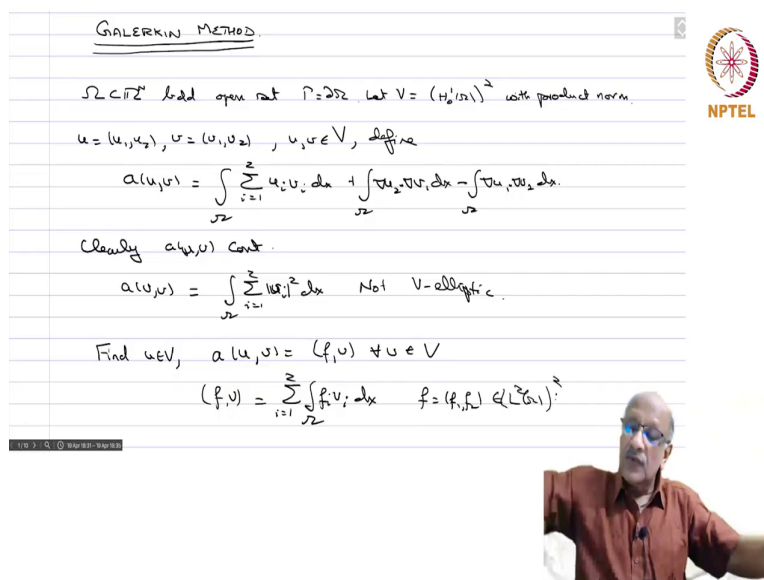 GALERKIN METHOD.
NPTEL
Ω ⊂ ℝ² bdd open set Γ = ∂Ω. Let V = (H₀¹(Ω))² with product norm.
u = (u₁, u₂), v = (v₁, v₂), u, v ∈ V, define
a(u,v) = ∫_Ω Σ_{i=1}^{2} uᵢvᵢ dx + ∫_Ω ∇u₂·∇v₁ dx − ∫_Ω ∇u₁·∇v₂ dx.
Clearly a(u,v) cont.
a(v,v) = ∫_Ω Σ_{i=1}^{2} |vᵢ|² dx Not V-elliptic.
Find u∈V, a(u,v) = (f,v) ∀ v ∈ V
(f,v) = Σ_{i=1}^{2} ∫_Ω fᵢvᵢ dx f = (f₁,f₂) ∈ (L²(Ω))².
1/10 19 Apr 18:31 - 19 Apr 18:35